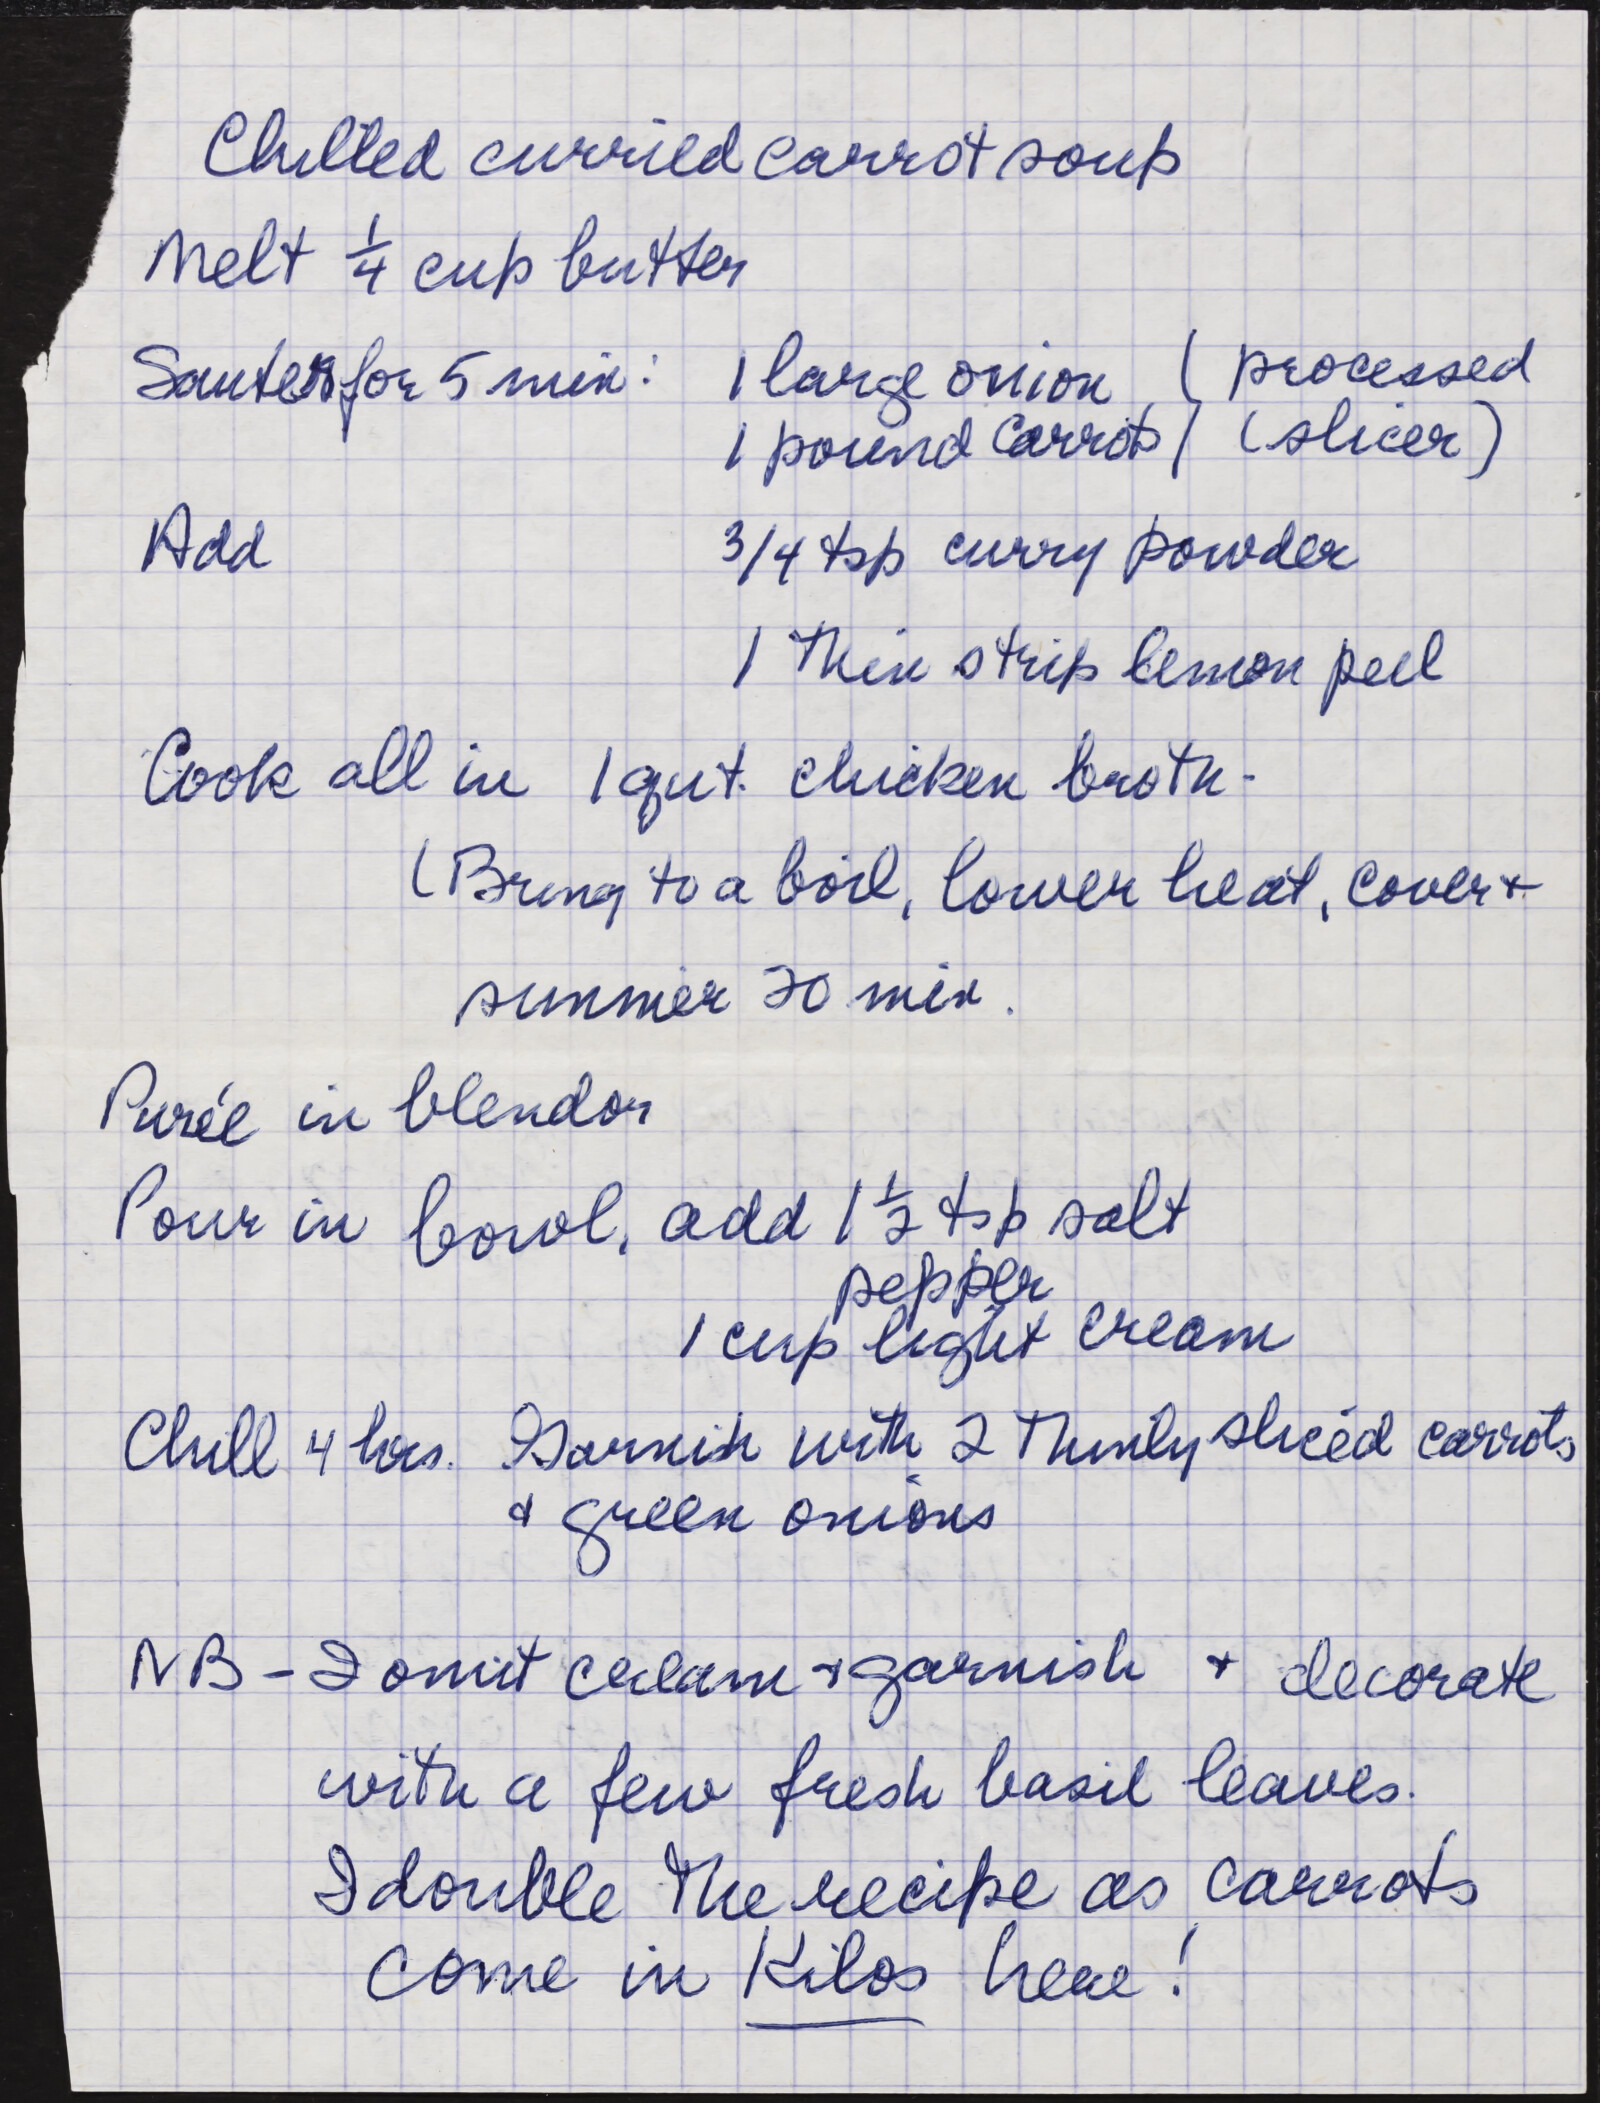 Chilled curried carrot soup
Melt 1/4 cup butter
Sauté for 5 min: 1 large onion ( processed
1 pound carrots / (slicer)
Add 3/4 tsp curry powder
1 thin strip lemon peel
Cook all in 1 qut. chicken broth -
(Bring to a boil, lower heat, cover +
simmer 20 min.
Purée in blendor
Pour in bowl, add 1 1/2 tsp salt
pepper
1 cup light cream
Chill 4 hrs. Garnish with 2 thinly sliced carrots
& green onions
NB - I omit cream + garnish + decorate
with a few fresh basil leaves.
I double the recipe as carrots
come in Kilos here!